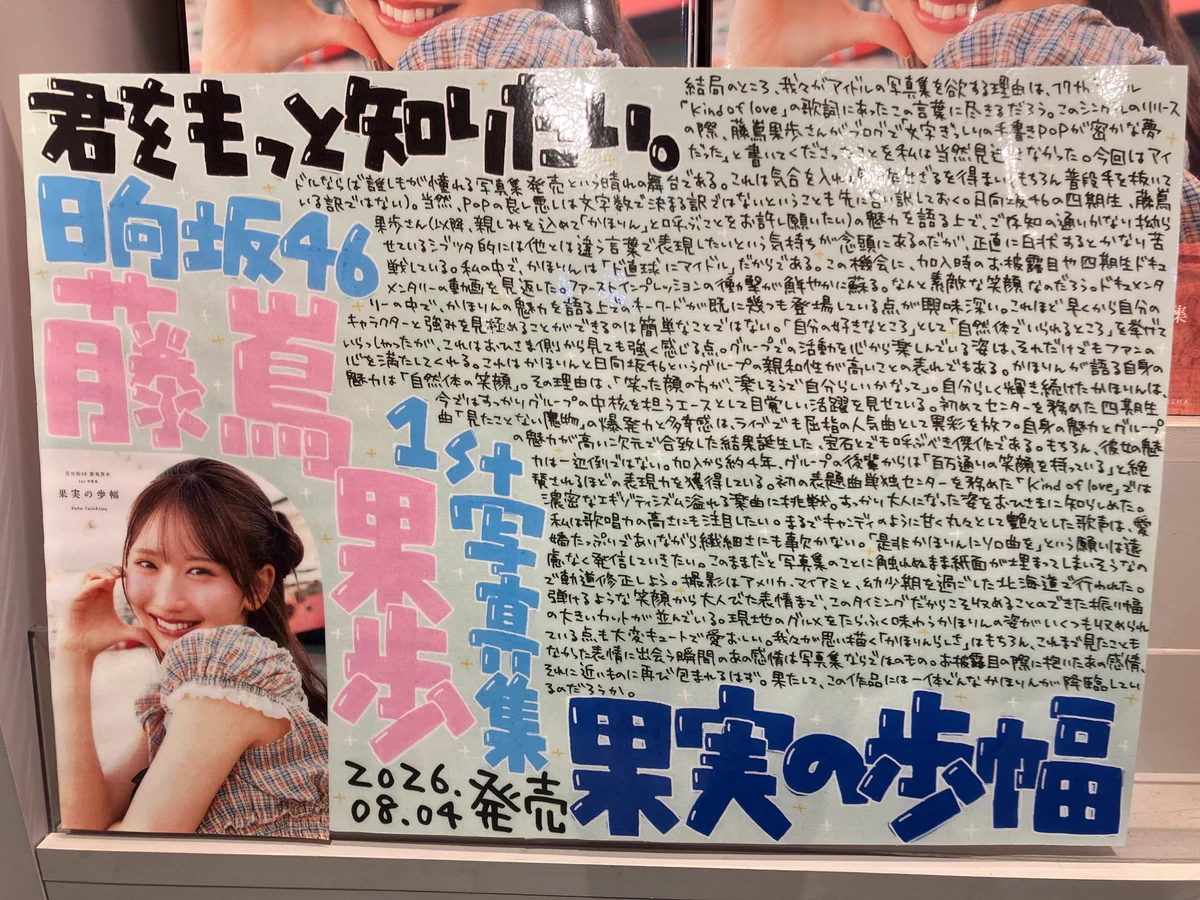 君をもっと知りたい。
日向坂46
藤嶌果歩
1st写真集
果実の歩幅
2026.08.04 発売
結局のところ、我々がアイドルの写真集を欲する理由は、
「Kind of love」の歌詞にあったこの言葉に尽きるだろう。このシングルのリリース
の際、藤嶌果歩さんがブログで「文字ぎっしりの手書きPOPが密かな夢
だった」と書いてくださったことを私は当然見逃さなかった。今回はアイ
ドルならば誰しもが憧れる写真集発売という晴れの舞台である。これは気合を入れざるを得まい(もちろん普段手を抜いて
いる訳ではない)。当然、POPの良し悪しは文字数で決まる訳ではないということも先に言い訳しておく。日向坂46の四期生、藤嶌
果歩さん(以降、親しみを込めて「かほりん」と呼ぶことをお許し願いたい)の魅力を語る上で、ご存知の通りいかない拗らせ
せているシブツタ的には他とは違う言葉で表現したいという気持ちが念頭にあるのだが、正直に白状するとかなり苦
戦している。私の中で、かほりんは「ド直球にアイドル」だからである。この機会に、加入時のお披露目や四期生ドキュ
メンタリーの動画を見返した。ファーストインプレッションの衝撃が鮮やかに蘇る。なんと素敵な笑顔なのだろう。ドキュメンタ
リーの中で、かほりんの魅力を語る上でのキーワードが既に幾つも登場している点が興味深い。これほど早くから自分の
キャラクターと強みを見極めることができるのは簡単なことではない。「自分の好きなところ」として「自然体でいられるところ」を挙げて
いらっしゃったが、これはおひさま側から見ても強く感じる点。グループでの活動を心から楽しんでいる姿は、それだけでもファンの
心を満たしてくれる。これはかほりんと日向坂46というグループの親和性が高いことの表れでもある。かほりんが語る自身の
魅力は「自然体の笑顔」。その理由は、「笑った顔の方が、楽しそうで自分らしいかなって」。自分らしく輝き続けたかほりんは、
今ではすっかりグループの中核を担うエースとして目覚しい活躍を見せている。初めてセンターを務めた四期生
曲「見たことない魔物」の爆発力と多幸感は、ライブでも屈指の人気曲として異彩を放つ。自身の魅力とグループ
の魅力が高い次元で合致した結果誕生した、宝石とでも呼ぶべき傑作である。もちろん、彼女の魅
力は一辺倒ではない。加入から約4年、グループの後輩からは「百万通りの笑顔を持っている」と絶
賛されるほどの表現力を獲得している。初の表題曲単独センターを務めた「Kind of love」では
濃密なエキゾティシズム溢れる楽曲に挑戦。すっかり大人になった姿をおひさまに知らしめた。
私は歌唱力の高さにも注目したい。まるでキャンディのように甘く丸々として艶々とした歌声は、愛
嬌たっぷりでありながら繊細さにも事欠かない。「是非かほりんにソロ曲を」という願いは遠
慮なく発信していきたい。このままだと写真集のことに触れぬまま紙面が埋まってしまいそうなの
で軌道修正しよう。撮影はアメリカ・マイアミと、幼少期を過ごした北海道で行われた。
弾けるような笑顔から大人びた表情まで、このタイミングだからこそ収めることのできた振り幅
の大きいカットが並んでいる。現地のグルメをたらふく味わうかほりんの姿がいくつも収められ
ている点も大変キュートで愛おしい。我々が思い描く「かほりんらしさ」はもちろん、これまで見たことも
なかった表情に出会う瞬間のあの感情は写真集ならではのもの。お披露目の際に抱いたあの感情、
それに近いものに再び包まれるはず。果たして、この作品には一体どんなかほりんが降臨してい
るのだろうか。
日向坂46 藤嶌果歩
1st 写真集
果実の歩幅
Kaho Fujishima